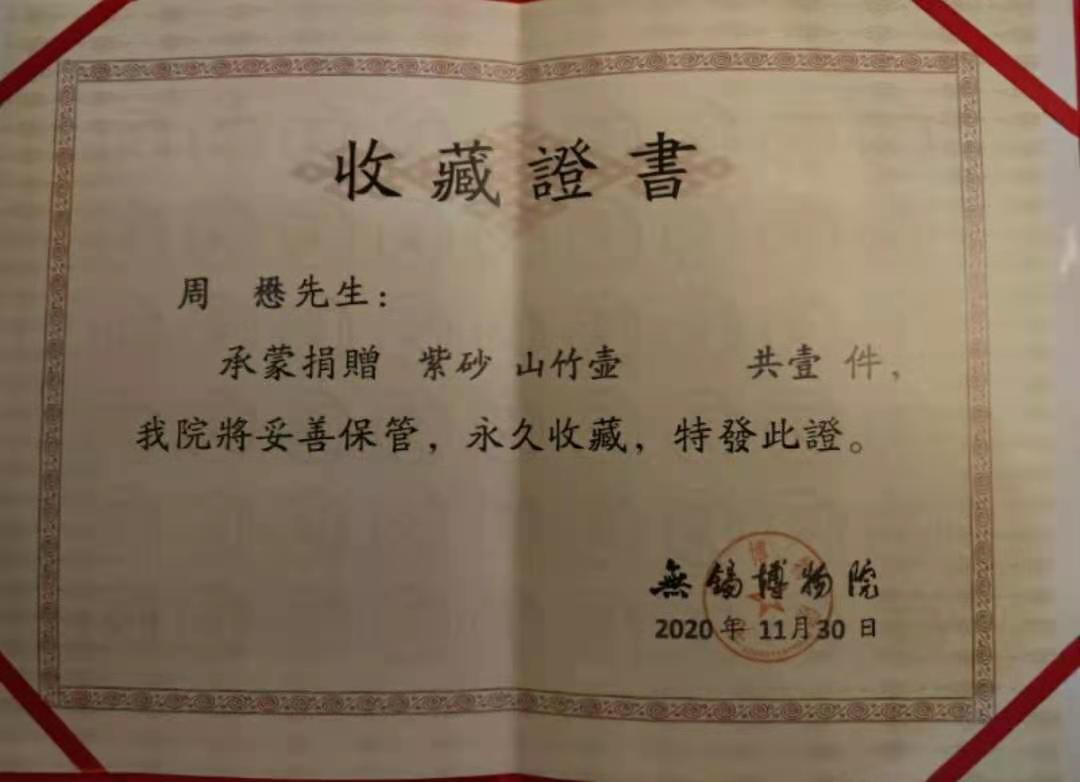 收藏證書
周 懋先生：
承蒙捐贈 紫砂 山竹壶 共壹 件，
我院將妥善保管，永久收藏，特發此證。
無錫博物院
2020 年 11月 30 日